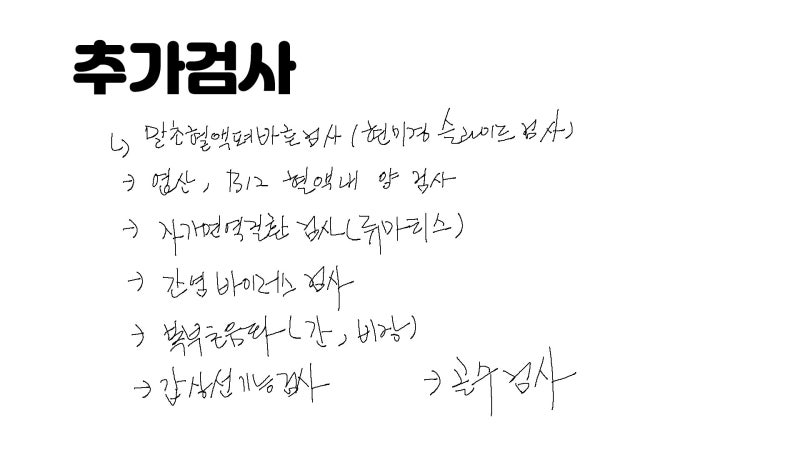 추가검사
↳ 말초혈액펴바흔검사 (현미경 슬라이드 검사)
→ 엽산, B12 혈액내 양 검사
→ 자가면역질환 검사 (류마티스)
→ 간념 바이러스 검사
→ 복부초음파 (간, 비장)
→ 갑상선기능검사 → 골수검사